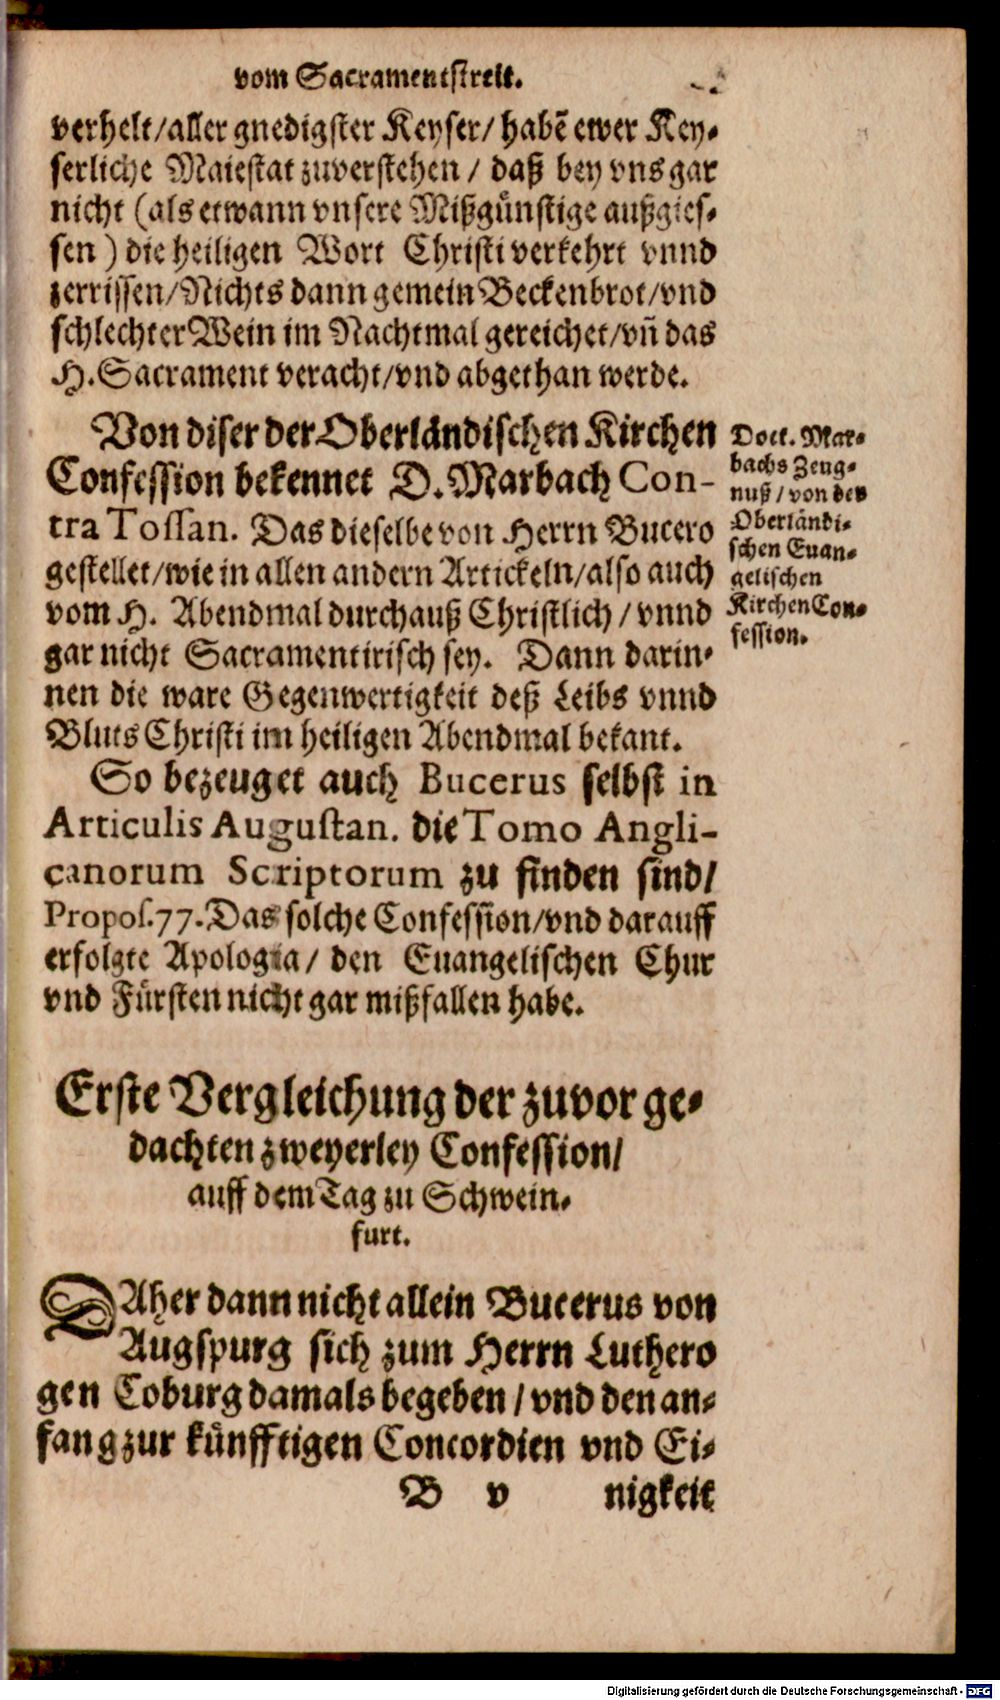 vom Sacramentstreit.
verhelt/aller gnedigster Keyser/habẽ ewer Key-
serliche Maiestat zuverstehen / daß bey vns gar
nicht (als etwann vnsere Mißgünstige außgies-
sen ) die heiligen Wort Christi verkehrt vnnd
zerrissen/Nichts dann gemein Beckenbrot/vnd
schlechter Wein im Nachtmal gereichet/vñ das
H. Sacrament veracht/vnd abgethan werde.
Von diser der Oberländischen Kirchen
Confession bekennet D. Marbach Con-
tra Tossan. Das dieselbe von Herrn Bucero
gestellet/wie in allen andern Artickeln/also auch
vom H. Abendmal durchauß Christlich / vnnd
gar nicht Sacramentirisch sey. Dann darin-
nen die ware Gegenwertigkeit deß Leibs vnnd
Bluts Christi im heiligen Abendmal bekant.
Doct. Mar-
bachs Zeug-
nuß / von der
Oberländi-
schen Euan-
gelischen
Kirchen Con-
fession.
So bezeuget auch Bucerus selbst in
Articulis Augustan. die Tomo Angli-
canorum Scriptorum zu finden sind/
Propos.77. Das solche Confession/vnd darauff
erfolgte Apologia/ den Euangelischen Chur
vnd Fürsten nicht gar mißfallen habe.
Erste Vergleichung der zuvor ge-
dachten zweyerley Confession/
auff dem Tag zu Schwein-
furt.
DAher dann nicht allein Bucerus von
Augspurg sich zum Herrn Luthero
gen Coburg damals begeben / vnd den an-
fang zur künfftigen Concordien vnd Ei-
B v nigkeit
Digitalisierung gefördert durch die Deutsche Forschungsgemeinschaft - DFG